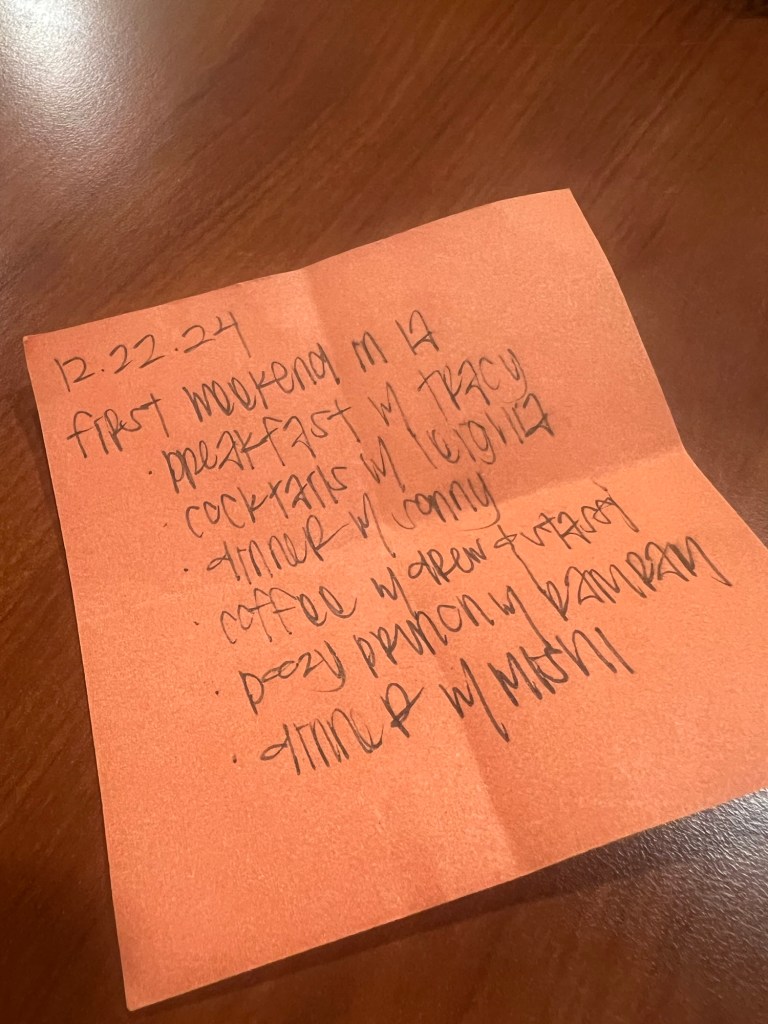 12.22.24
first weekend in la
· breakfast w/ tracy
cocktails w/ leighla
· dinner w/ sonny
· coffee w/ drew +
· boozy brunch w/ bambam
· dinner w/ mishi